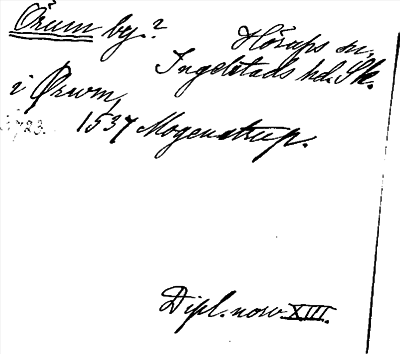 Örum by.?
Hörups sn.
Ingelstads hd. Sk.
i Ørwm,
1537 Mogenstrup.
723.
Dipl. norv. XIII.